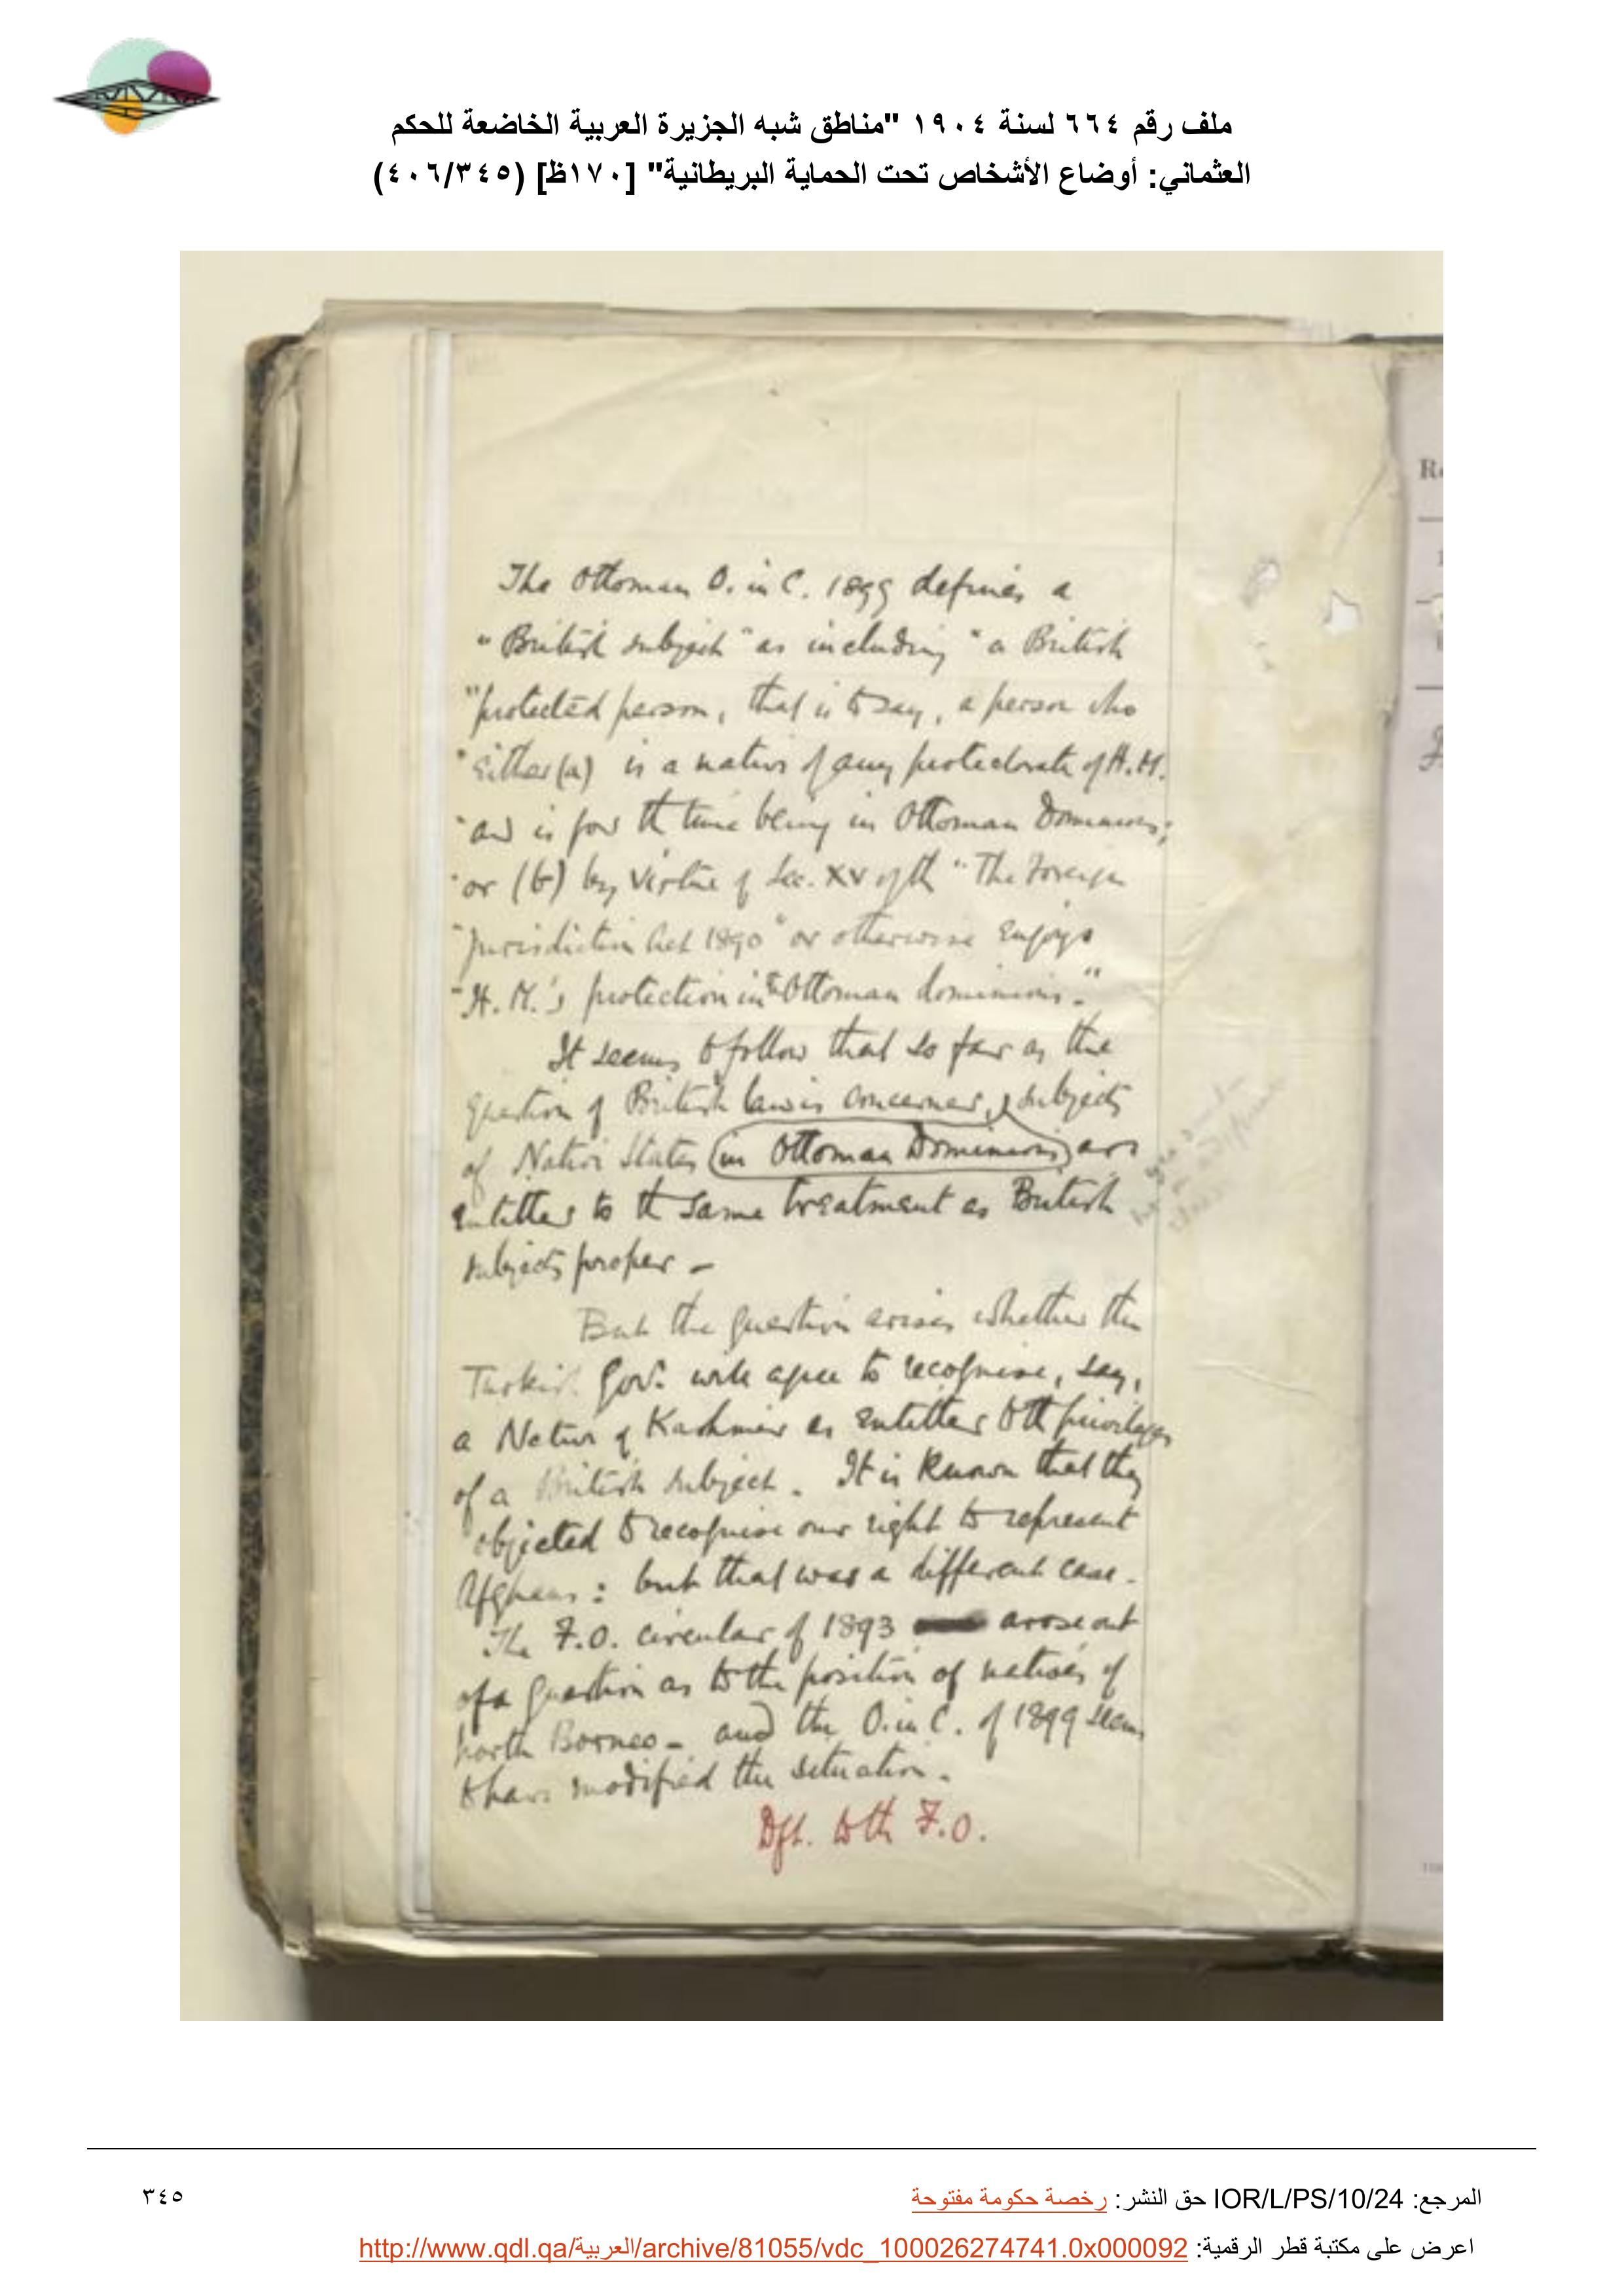 ملف رقم ٦٦٤ لسنة ١٩٠٤ "مناطق شبه الجزيرة العربية الخاضعة للحكم
العثماني: أوضاع الأشخاص تحت الحماية البريطانية" [١٧٠ظ] (٤٠٦/٣٤٥)
The Ottoman O. in C. 1899 defines a
"British subject" as including "a British
"protected person, that is to say, a person who
"either (a) is a native of any protectorate of H.M.
"and is for the time being in Ottoman Dominions;
"or (b) by virtue of Sec. XV of the "The Foreign
"Jurisdiction Act 1890" or otherwise enjoys
"H.M.'s protection in the Ottoman dominions."
It seems to follow that so far as the
question of British law is concerned, subjects
of Native States (in Ottoman Dominions) are
entitled to the same treatment as British
subjects proper –
But the question arises whether the
Turkish Govt. will agree to recognise, say,
a Native of Kashmir as entitled to the privileges
of a British subject. It is known that they
objected to recognise our right to represent
Afghans: but that was a different case.
The F.O. circular of 1893 arose out
of a question as to the position of natives of
North Borneo – and the O. in C. of 1899 seems
to have modified the situation.
Dft. to the F.O.
المرجع: IOR/L/PS/10/24 حق النشر: رخصة حكومة مفتوحة
٣٤٥
اعرض على مكتبة قطر الرقمية: http://www.qdl.qa/العربية/archive/81055/vdc_100026274741.0x000092